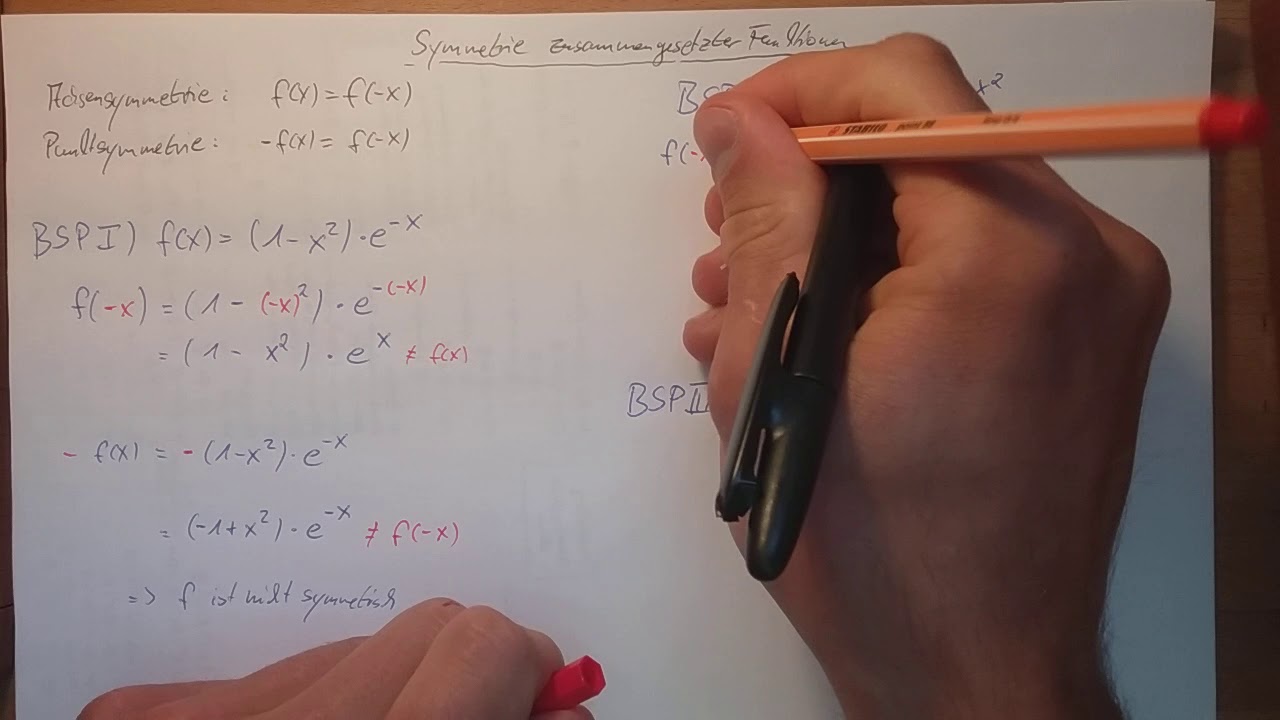 Symmetrie zusammengesetzter Funktionen
Achsensymmetrie: f(x) = f(-x)
Punktsymmetrie: -f(x) = f(-x)
BSP I) f(x) = (1-x²)·e^-x
f(-x) = (1-(-x)²)·e^-(-x)
= (1-x²)·e^x ≠ f(x)
- f(x) = -(1-x²)·e^-x
= (-1+x²)·e^-x ≠ f(-x)
=> f ist nicht symmetrisch
BSP x²
f(-x
BSP II
STABILO